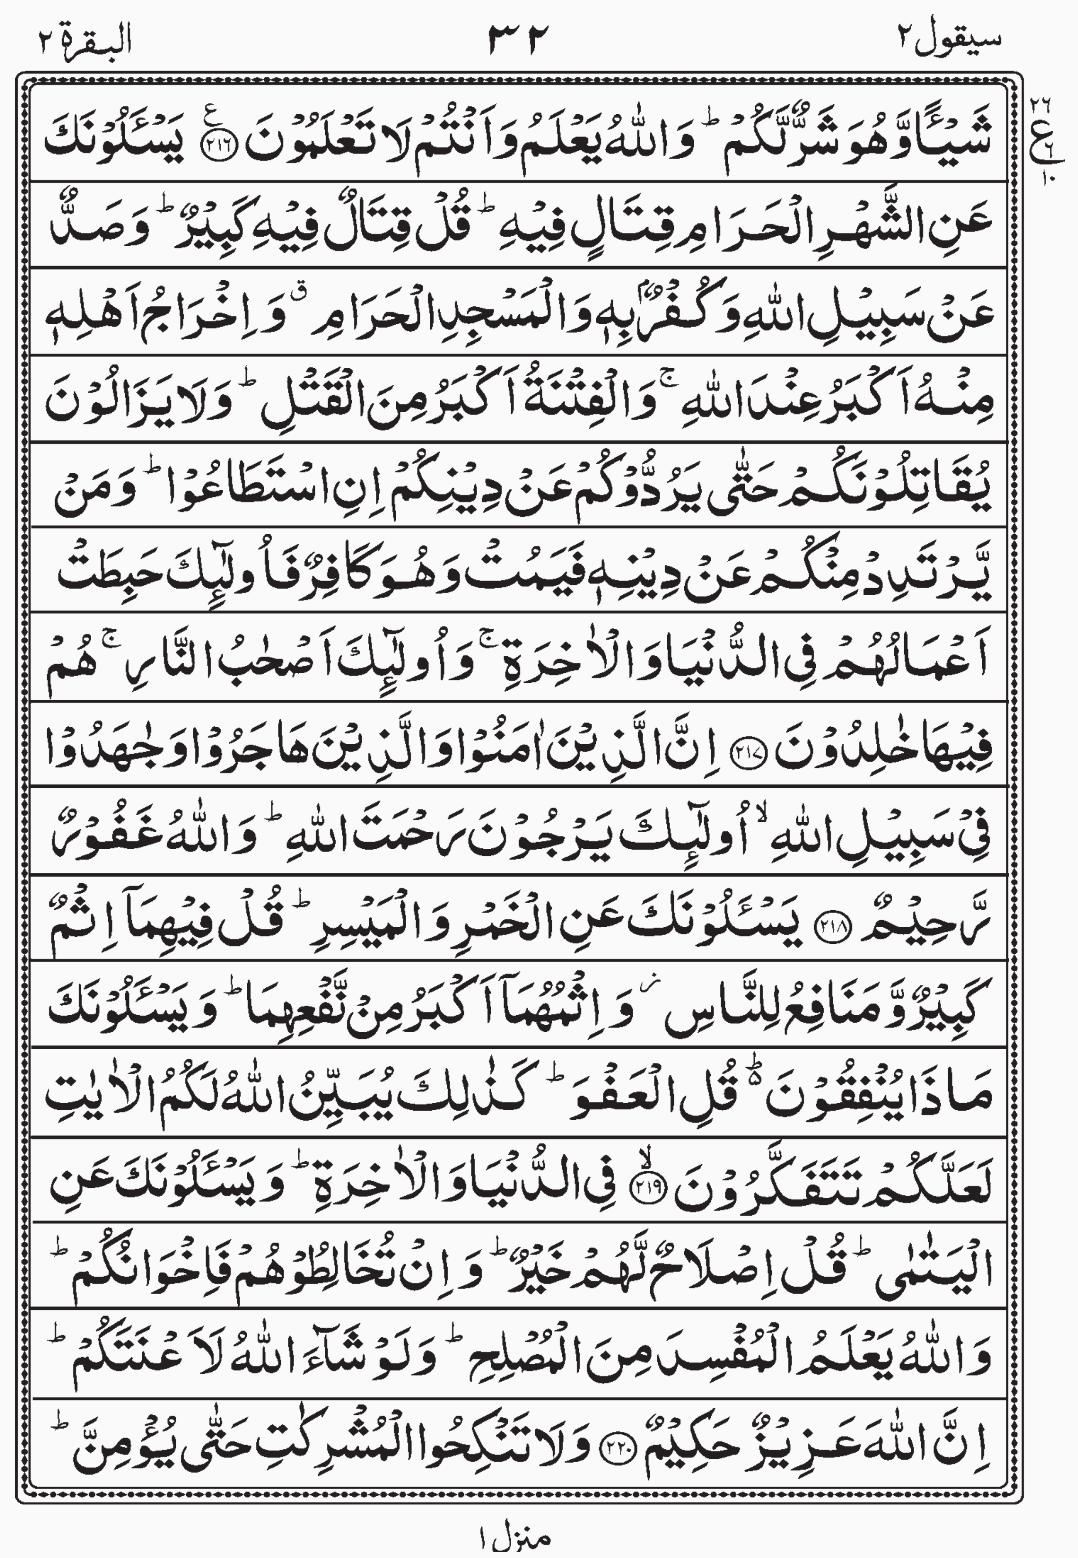 سيقول ٢ ٣٢ البقرة ٢
٢٦
ع
٦
١٠
شَيْـًٔا وَّهُوَ شَرٌّ لَّكُمْ ؕ وَاللّٰهُ يَعْلَمُ وَاَنْتُمْ لَا تَعْلَمُوْنَ ۧ ﴿٢١٦﴾ يَسْـَٔلُوْنَكَ
عَنِ الشَّهْرِ الْحَرَامِ قِتَالٍ فِيْهِ ؕ قُلْ قِتَالٌ فِيْهِ كَبِيْرٌ ؕ وَصَدٌّ
عَنْ سَبِيْلِ اللّٰهِ وَكُفْرٌۢ بِهٖ وَالْمَسْجِدِ الْحَرَامِ ۗ وَاِخْرَاجُ اَهْلِهٖ
مِنْهُ اَكْبَرُ عِنْدَ اللّٰهِ ۚ وَالْفِتْنَةُ اَكْبَرُ مِنَ الْقَتْلِ ؕ وَلَا يَزَالُوْنَ
يُقَاتِلُوْنَكُمْ حَتّٰى يَرُدُّوْكُمْ عَنْ دِيْنِكُمْ اِنِ اسْتَطَاعُوْا ؕ وَمَنْ
يَّرْتَدِدْ مِنْكُمْ عَنْ دِيْنِهٖ فَيَمُتْ وَهُوَ كَافِرٌ فَاُولٰٓئِكَ حَبِطَتْ
اَعْمَالُهُمْ فِى الدُّنْيَا وَالْاٰخِرَةِ ۚ وَاُولٰٓئِكَ اَصْحٰبُ النَّارِ ۚ هُمْ
فِيْهَا خٰلِدُوْنَ ﴿٢١٧﴾ اِنَّ الَّذِيْنَ اٰمَنُوْا وَالَّذِيْنَ هَاجَرُوْا وَجٰهَدُوْا
فِىْ سَبِيْلِ اللّٰهِ ۙ اُولٰٓئِكَ يَرْجُوْنَ رَحْمَتَ اللّٰهِ ؕ وَاللّٰهُ غَفُوْرٌ
رَّحِيْمٌ ﴿٢١٨﴾ يَسْـَٔلُوْنَكَ عَنِ الْخَمْرِ وَالْمَيْسِرِ ؕ قُلْ فِيْهِمَآ اِثْمٌ
كَبِيْرٌ وَّمَنَافِعُ لِلنَّاسِ ز وَاِثْمُهُمَآ اَكْبَرُ مِنْ نَّفْعِهِمَا ؕ وَيَسْـَٔلُوْنَكَ
مَاذَا يُنْفِقُوْنَ ۬ؕ قُلِ الْعَفْوَ ؕ كَذٰلِكَ يُبَيِّنُ اللّٰهُ لَكُمُ الْاٰيٰتِ
لَعَلَّكُمْ تَتَفَكَّرُوْنَ ۙ ﴿٢١٩﴾ فِى الدُّنْيَا وَالْاٰخِرَةِ ؕ وَيَسْـَٔلُوْنَكَ عَنِ
الْيَتٰمٰى ؕ قُلْ اِصْلَاحٌ لَّهُمْ خَيْرٌ ؕ وَاِنْ تُخَالِطُوْهُمْ فَاِخْوَانُكُمْ ؕ
وَاللّٰهُ يَعْلَمُ الْمُفْسِدَ مِنَ الْمُصْلِحِ ؕ وَلَوْ شَآءَ اللّٰهُ لَاَعْنَتَكُمْ ؕ
اِنَّ اللّٰهَ عَزِيْزٌ حَكِيْمٌ ﴿٢٢٠﴾ وَلَا تَنْكِحُوا الْمُشْرِكٰتِ حَتّٰى يُؤْمِنَّ ؕ
منزل ١